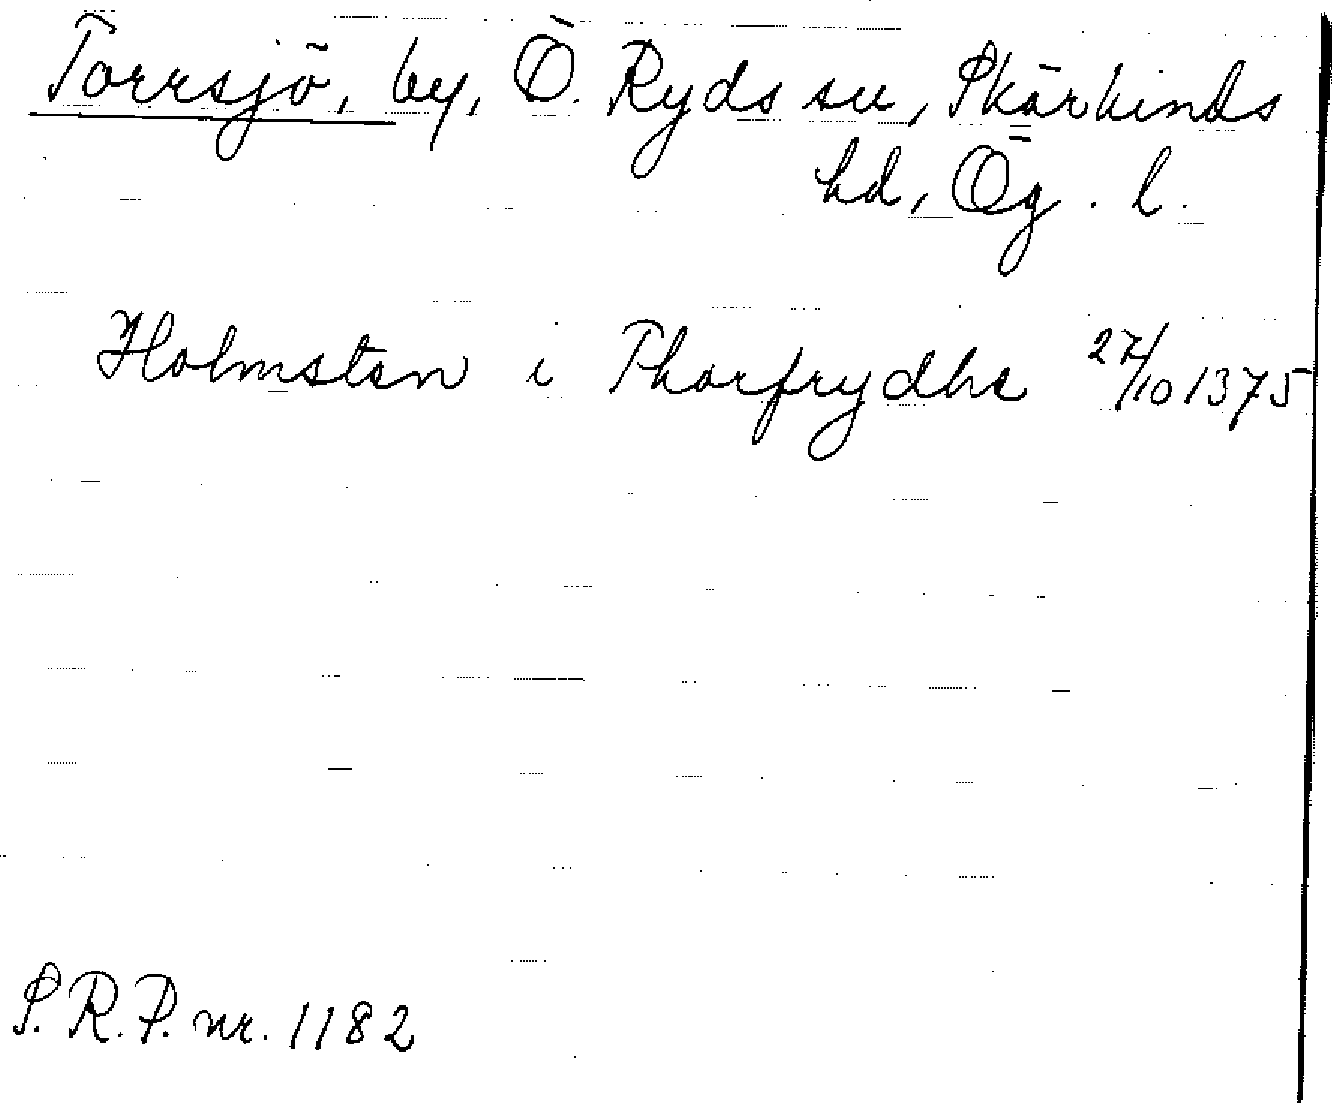 Torrsjö, by, Ö. Ryds sn, Skärkinds
hd, Ög. l.
Holmsten i Thorfrydhe 27/10 1375
S.R.P. nr. 1182